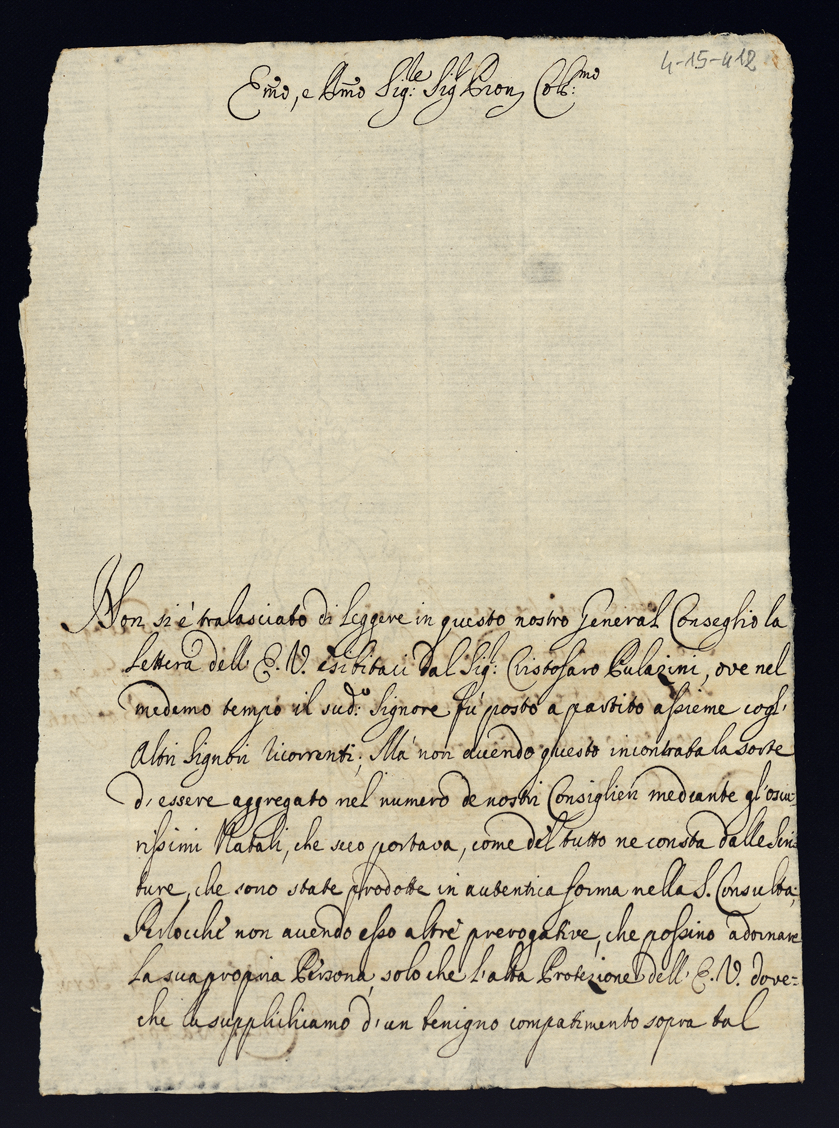 4-15-412
Em̃o, e Rm̃o Sig:re Sig:r Pron Coll:mo
Non si è tralasciato di Leggere in questo nostro General Conseglio la
Lettera dell'E. V. esibitaci dal Sig: Cristofaro Pulazini, ove nel
medemo tempo il sud:o Signore fù posto a partito assieme cogl'
Altri Signori ricorrenti; Mà non avendo questo incontrata la sorte
d'essere aggregato nel numero de nostri Consiglieri mediante gl'oscu-
rissimi Natali, che seco portava, come del tutto ne consta dalle Scrit-
ture, che sono state prodotte in autentica forma nella S. Consulta;
Perlocchè non avendo esso altre prerogative, che possino adornare
La sua propria Persona, solo che L'alta Protezione dell'E. V. dove-
che la supplichiamo d'un benigno compatimento sopra tal